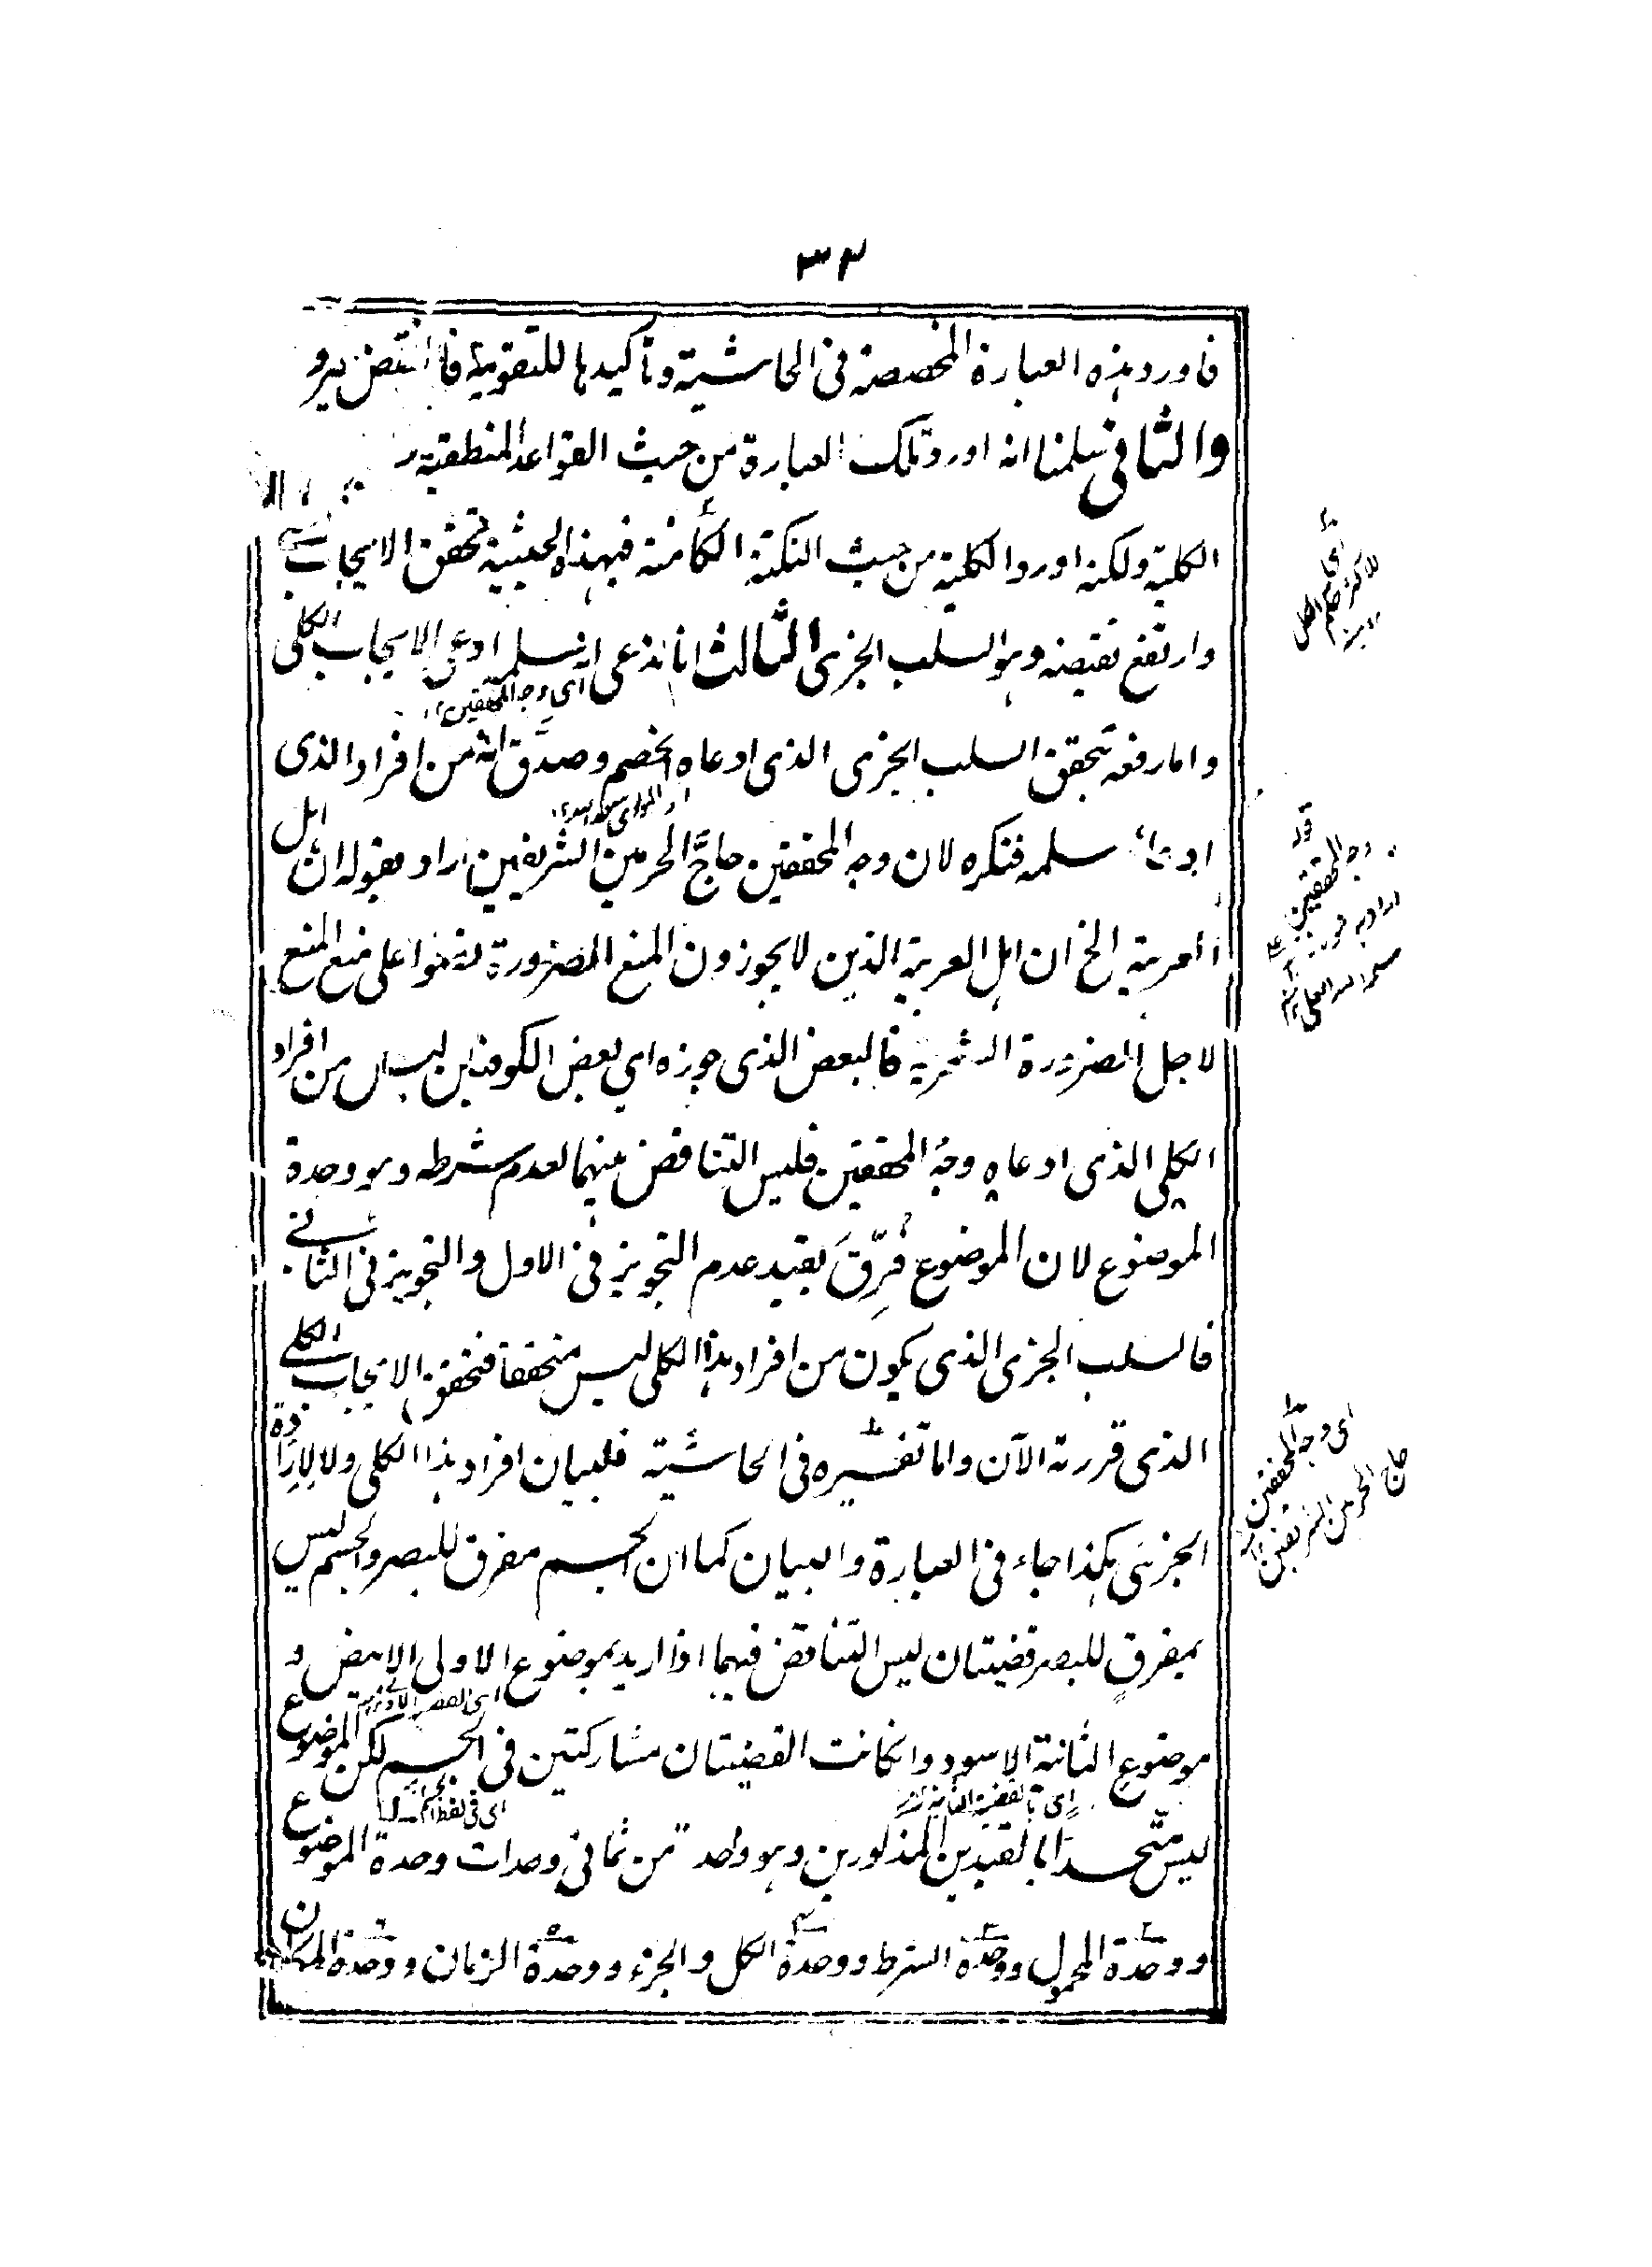 ٣٣
فاورد هذه العبارة المخصصة فى الحاشية وتاكيدها للتقوية فانتقض
والثانى سلمنا انه اورد تلك العبارة من حيث القواعد المنطقية
الكلية ولكنه اورد الكلية من حيث النكتة الكامنة فبهذه الحيثية تحقق الايجاب
وارتفع نقيضه وهو السلب الجزى الثالث انا ندعى انه سلم ادعى الايجاب الكلى
اى وجه المحققين
واما رفعه بتحقق السلب الجزى الذى ادعاه الخصم وصدق انه من افراد الذى
سلمه فنكره لان وجه المحققين حاجَّ الحرمين الشريفين اراد بقوله ان اهل
العربية الخ ان اهل العربية الذين لا يجوزون المنع للضرورة على منع المنع
لاجل الضرورة الشعرية فالبعض الذى جوزه اى بعض الكوفيين ليس من افراد
الكلى الذى ادعاه وجه المحققين فليس التناقض بينهما لعدم شرطه وهو وحدة
الموضوع لان الموضوع فُرِّقَ بقيد عدم التجويز فى الاول والتجويز فى الثانى
فالسلب الجزى الذى يكون من افراد هذا الكلى ليس متحققا فتحقق الايجاب الكلى
الذى قررته الآن واما تفسيره فى الحاشية فلبيان افراد هذا الكلى ولا لاِرَادة
الجزئى هكذا جاء فى العبارة والبيان كما ان الجسم مفرق للبصر والجسم ليس
بمفرقٍ للبصر قضيتان ليس التناقض فيهما اذا اريد بموضوع الاولى الابيض و
موضوع الثانية الاسود وانكانت القضيتان مشاركتين فى الجسم لكن الموضوع
اى فى لفظ الجسم
ليس متحدًا بالقيدين المذكورين وهو واحد من ثمانى وحدات وحدة الموضوع
ووحدة المحمول ووحدة الشرط ووحدة الكل والجزء ووحدة الزمان ووحدة المكان
وجه المحققين
اى وجه المحققين
حاج الحرمين الشريفين